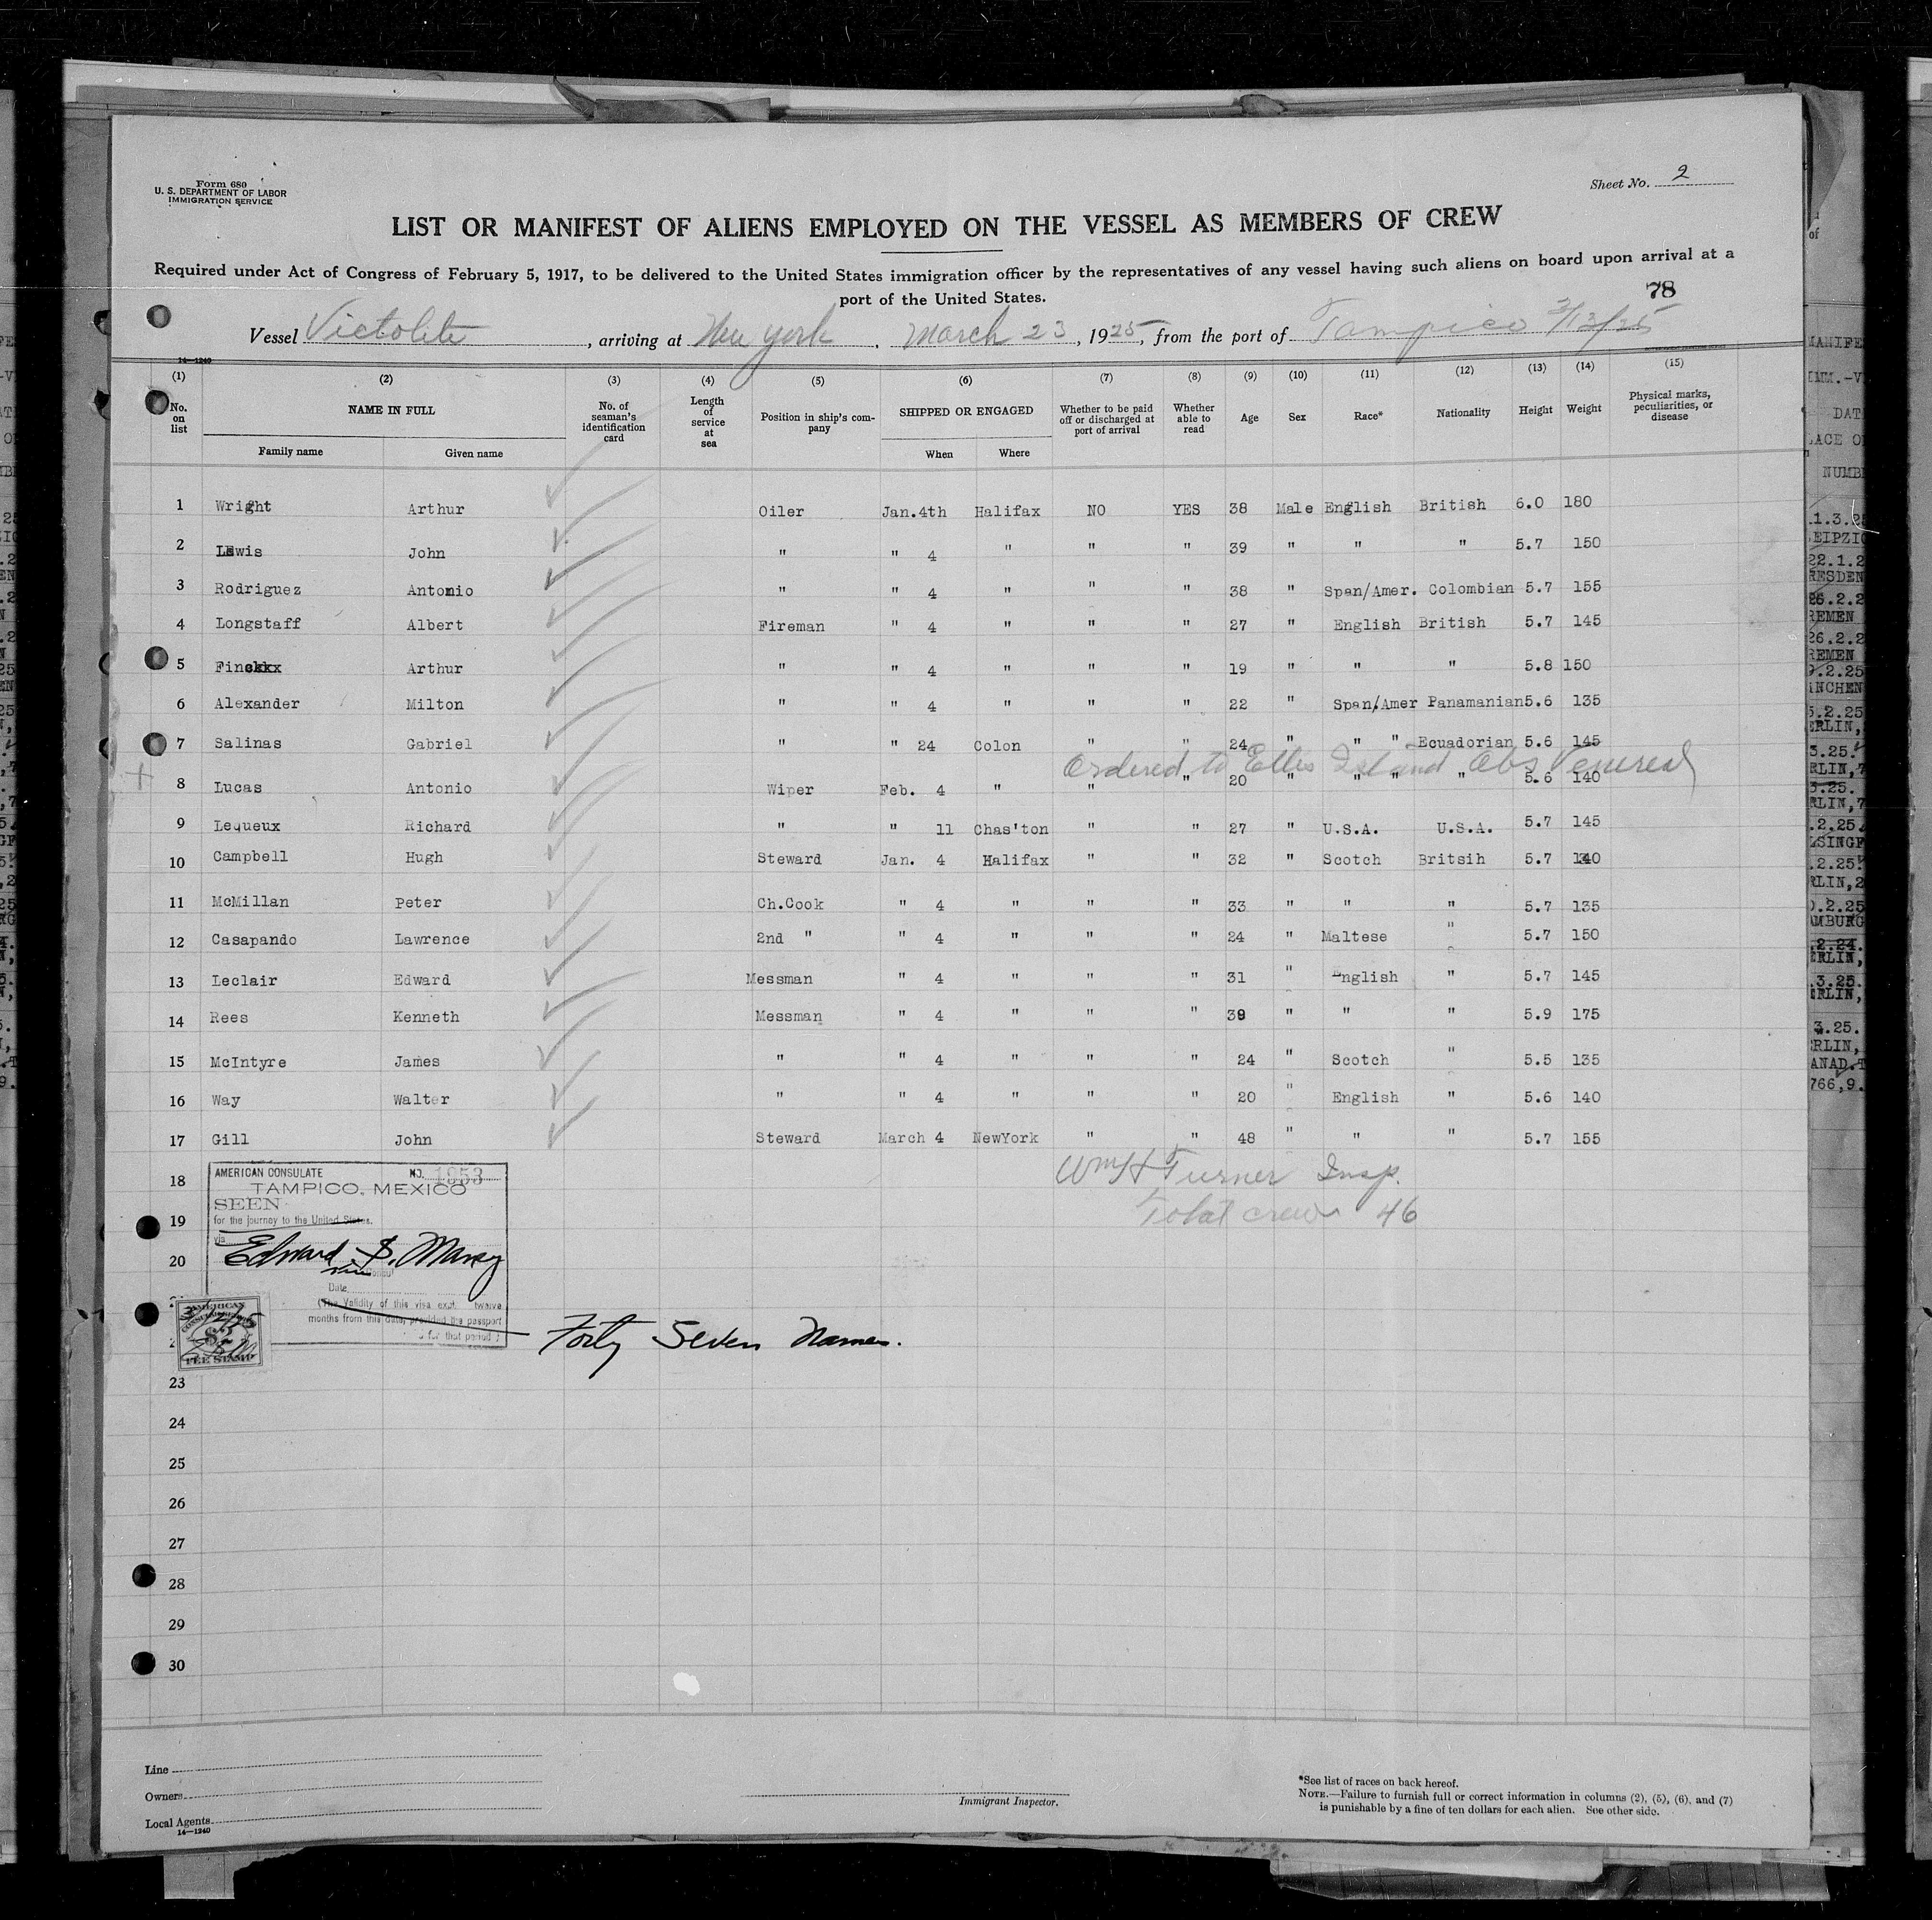 Form 680
U. S. DEPARTMENT OF LABOR
IMMIGRATION SERVICE
Sheet No. 2
LIST OR MANIFEST OF ALIENS EMPLOYED ON THE VESSEL AS MEMBERS OF CREW
Required under Act of Congress of February 5, 1917, to be delivered to the United States immigration officer by the representatives of any vessel having such aliens on board upon arrival at a
port of the United States.
78
Vessel Victolite, arriving at New York, March 23, 1925, from the port of Tampico 3/13/25
14—1240
(1) (2) (3) (4) (5) (6) (7) (8) (9) (10) (11) (12) (13) (14) (15)
No. on list NAME IN FULL No. of seaman's identification card Length of service at sea Position in ship's company SHIPPED OR ENGAGED Whether to be paid off or discharged at port of arrival Whether able to read Age Sex Race* Nationality Height Weight Physical marks, peculiarities, or disease
Family name Given name When Where
1 Wright Arthur Oiler Jan.4th Halifax NO YES 38 Male English British 6.0 180
2 Lewis John " " 4 " " " 39 " " " 5.7 150
3 Rodriguez Antonio " " 4 " " " 38 " Span/Amer. Colombian 5.7 155
4 Longstaff Albert Fireman " 4 " " " 27 " English British 5.7 145
5 Finckkx Arthur " " 4 " " " 19 " " " 5.8 150
6 Alexander Milton " " 4 " " " 22 " Span/Amer Panamanian 5.6 135
7 Salinas Gabriel " " 24 Colon " " 24 " " " Ecuadorian 5.6 145
Ordered to Ellis Island Obs Venereal
8 Lucas Antonio Wiper Feb. 4 " " " 20 " " " " 5.6 140
9 Lequeux Richard " " 11 Chas'ton " " 27 " U.S.A. U.S.A. 5.7 145
10 Campbell Hugh Steward Jan. 4 Halifax " " 32 " Scotch Britsih 5.7 140
11 McMillan Peter Ch.Cook " 4 " " " 33 " " " 5.7 135
12 Casapando Lawrence 2nd " " 4 " " " 24 " Maltese " 5.7 150
13 Leclair Edward Messman " 4 " " " 31 " English " 5.7 145
14 Rees Kenneth Messman " 4 " " " 39 " " " 5.9 175
15 McIntyre James " " 4 " " " 24 " Scotch " 5.5 135
16 Way Walter " " 4 " " " 20 " English " 5.6 140
17 Gill John Steward March 4 NewYork " " 48 " " " 5.7 155
18 Wm H Turner Insp.
19 Total crew 46
20
AMERICAN CONSULATE NO. 1953
TAMPICO, MEXICO
SEEN
for the journey to the United States.
via
Edward S. Maney
Vice Consul
Date
(The Validity of this visa expi twelve
months from this date, provided the passport
for that period)
AMERICAN
$2
FEE STAMP
Forty Seven Names.
23
24
25
26
27
28
29
30
Line
Owners
Local Agents
14—1240
Immigrant Inspector.
*See list of races on back hereof.
NOTE.—Failure to furnish full or correct information in columns (2), (5), (6), and (7)
is punishable by a fine of ten dollars for each alien. See other side.